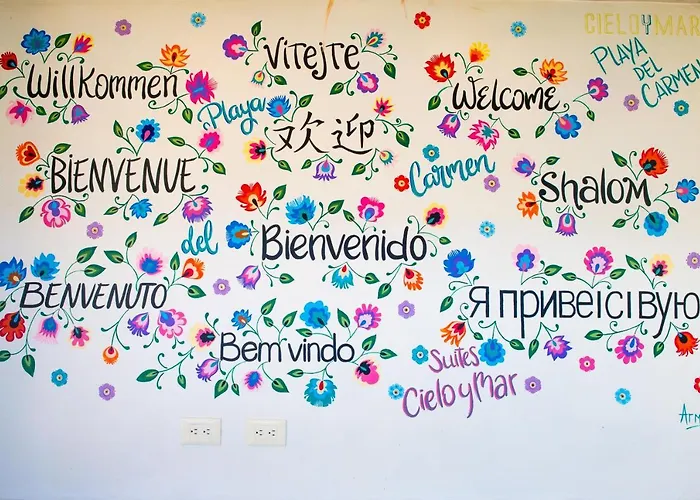 CIELOYMAR
PLAYA
DEL
CARMEN
Willkommen
Vitejte
Welcome
Playa
欢迎
BIENVENUE
Carmen
Shalom
del
Bienvenido
BENVENUTO
Я привеiсiвую
Bem vindo
Suites
Cielo y Mar